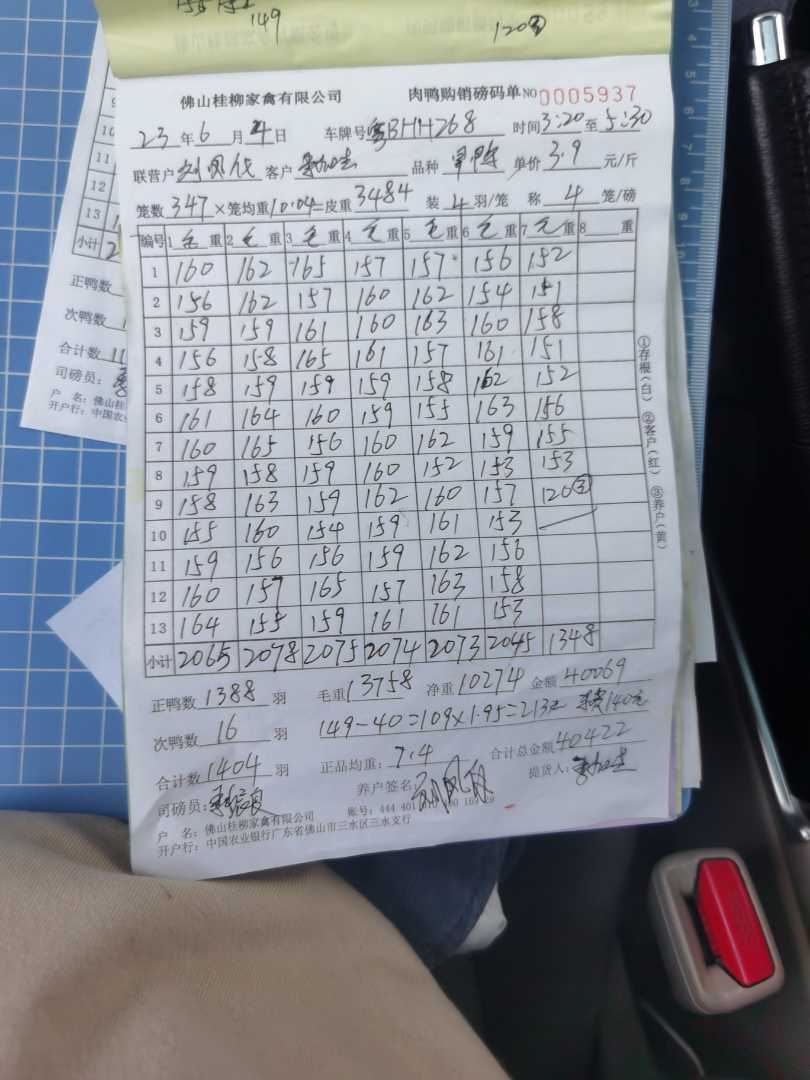 149
120③
佛山桂柳家禽有限公司 肉鸭购销磅码单 NO 0005937
23年6月4日 车牌号粤BHH268 时间3:20至5:30
联营户 客户 品种 单价3.9元/斤
笼数347×笼均重10.04=皮重3484 装4羽/笼 称4笼/磅
编号 1毛重 2毛重 3毛重 4毛重 5毛重 6毛重 7毛重 8 重
1 160 162 165 157 157 156 152
2 156 162 157 160 162 154 151
3 159 159 161 160 163 160 158
4 156 158 165 161 157 161 151
5 158 159 159 159 158 162 152
6 161 164 160 159 155 163 156
7 160 165 156 160 162 159 155
8 159 158 159 160 152 153 153
9 158 163 159 162 160 157 120③
10 155 160 154 159 161 153
11 159 156 156 159 162 156
12 160 157 165 157 163 158
13 164 155 159 161 161 153
小计 2065 2078 2075 2074 2073 2045 1348
正鸭数1388羽 毛重13758 净重10274 金额40069
次鸭数16羽 149-40=109×1.95=213元 140元
合计数1404羽 正品均重:7.4 合计总金额40422
司磅员: 养户签名: 提货人:
户 名:佛山桂柳家禽有限公司 账号:444 401
开户行:中国农业银行广东省佛山市三水区三水支行
①存根(白) ②客户(红) ③养户(黄)
10
11
12
13
小计
正鸭数
次鸭数
合计数
司磅员:
户 名:佛山桂
开户行:中国农业